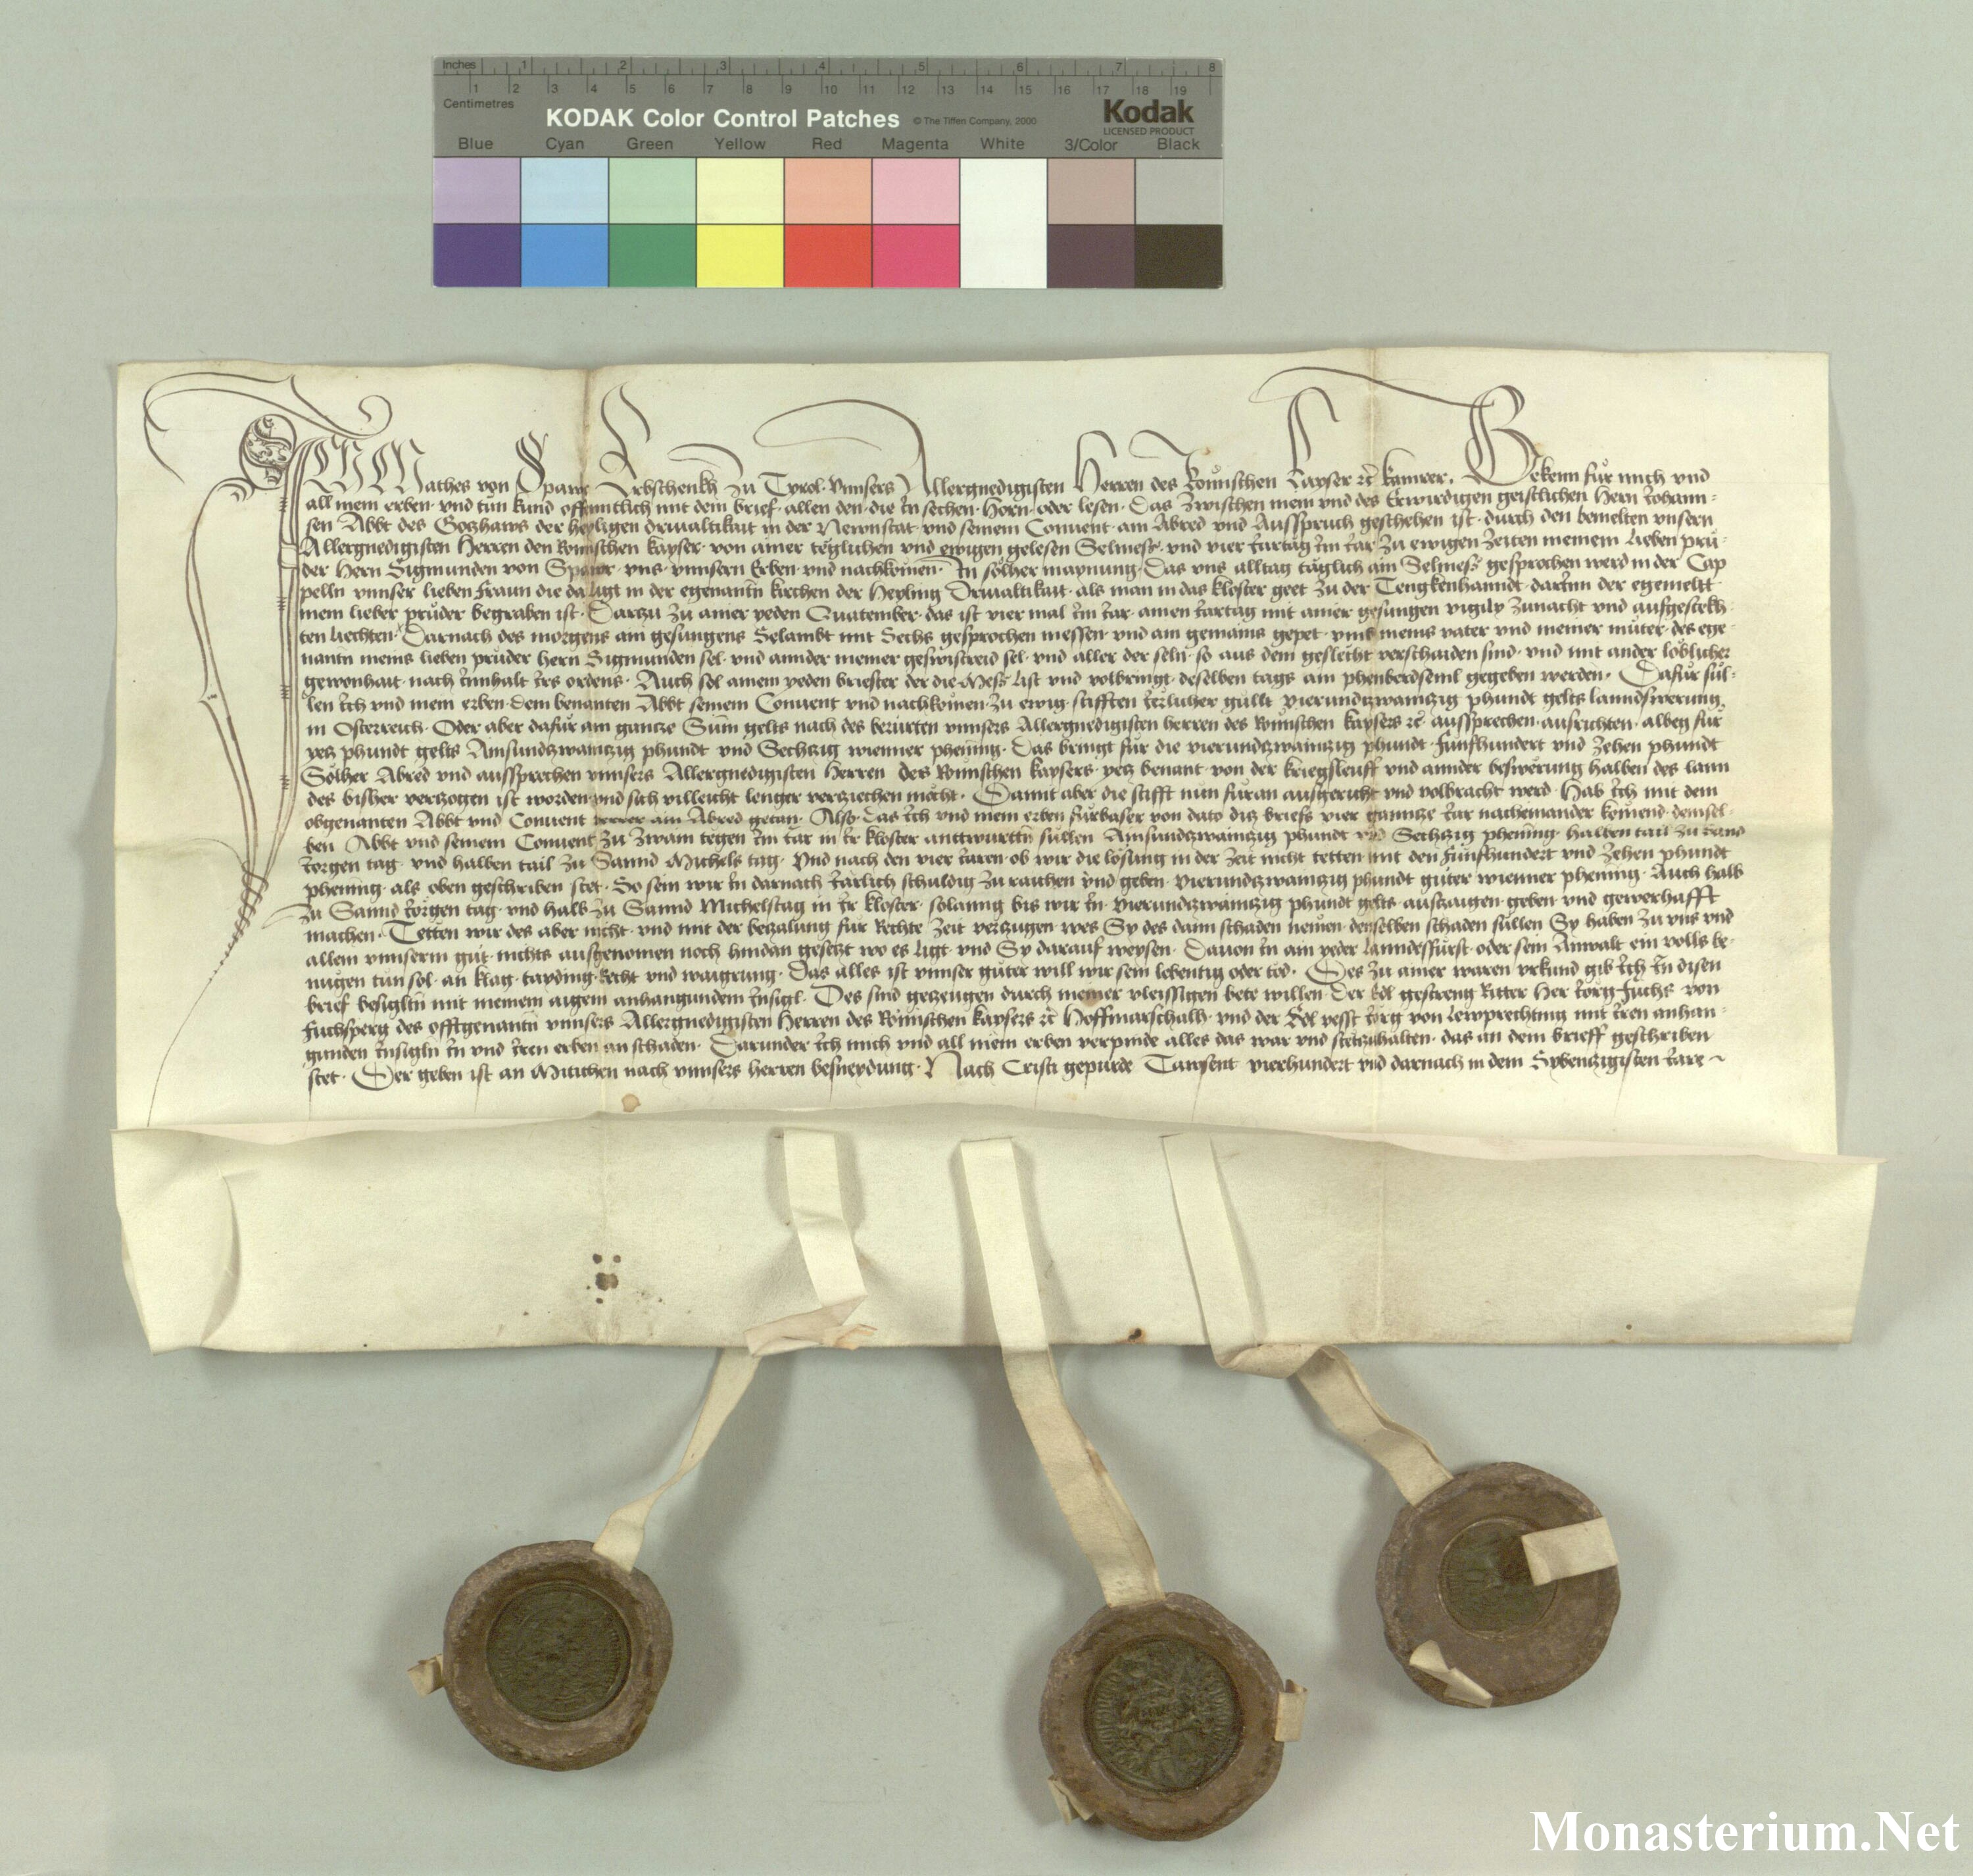 Inches 1 2 3 4 5 6 7 8
1 2 3 4 5 6 7 8 9 10 11 12 13 14 15 16 17 18 19
Centimetres
KODAK Color Control Patches © The Tiffen Company, 2000 Kodak
LICENSED PRODUCT
Blue Cyan Green Yellow Red Magenta White 3/Color Black
ICH Mathes von Spawr Erbschenkh zu Tyrol vnnsers Allergnedigisten Herren des Römischen Kayser rc kamrer. Bekenn für mich vnd
all mein erben vnd tun kund offenntlich mit dem brief allen den die in sechen Horn oder lesen Das zwischen mein vnd des Erwirdigen geistlichen Hern Johann-
sen Abbt des Gotzhaws der heyligen driualtikait in der Newnstat vnd seinem Conuent am Abred vnd Ausspruch geschehen ist durch den bemelten vnsern
Allergnedigisten Herren den Römischen kayser von ainer teglichen vnd ewigen gelesen Selmess vnd vier Jartag im Jar zu ewigen zeiten meinem lieben prü-
der Hern Sigmunden von Spawr vns vnnsern Erben vnd nachkömen. In sölher maynung Das vns alltag täglich ain Selmess gesprochen werd in der Cap
pelln vnnser lieben Fraun die da ligt in der egenantn kirchen der Heyling Driualtikait als man in das kloster geet zu der Tengkenhannidt darInn der egemelt
mein lieber prüder begraben ist. Darzu zu ainer yeden Quatember das ist vier mal im Jar ainen Jartag mit ainer gesungen vigily zunacht vnd aufgestekh
ten liechten. Darnach des morgens ain gesungens Selambt mit Sechs gesprochen messen vnd ain gemains gepet vmb meins vater vnd meiner müter des ege-
nantn meins lieben prüder hern Sigmunden sel vnd annder meiner geswistreid sel vnd aller der seln so aus dem geslecht verschaiden sind vnd mit ander löblicher
gewonhait nach Innhalt irs ordens. Auch sol ainem yeden briester der die Mess list vnd volbringt deselben tags ain phenberdseml gegeben werden. Dafür sül-
len Ich vnd mein erben dem benanten Abbt seinem Conuent vnd nachkömen zu ewig stifften Jerlicher güllt vierundzwaintzig phundt gelts lanndswerung
in Osterreich. Oder aber dafür ain gantze Sum gelts nach des berürten vnnsers Allergnedigisten herren des Römschen kaysers rc aussprechen ausrichten albeg für
yetz phundt gelts Ainsundzwaintzig phundt vnd Sechtzig wienner phening. Das bringt für die vierundzwaintzig phundt fünfhundert vnd zehen phundt
Sölher Abred vnd aussprechen vnnsers Allergnedigisten Herren des Römschen kaysers yetz benant von der kriegsleuff vnd annder beswerung halben des lann
des bisher vertzogen ist worden vnd sich villeicht lenger vertziechen möcht. Damit aber die stifft nün füran ausgericht vnd volbracht werd Hab Ich mit dem
obgenanten Abbt vnd Conuent ain Abred getan. Also das Ich vnd mein erben fürbaser von dato ditz briefs vier ganntze Jar nacheinander komend demsel-
ben Abbt vnd seinem Conuent zu zwain tegen im Jar in Ir kloster anttwurttn süllen Ainsundzwaintzig phundt vnd Sechtzig phening halben tail zu Sand
Jorgen tag vnd halben tail zu Sannd Michels tag. Vnd nach den vier Jaren ob wir die losung in der zeit nicht tetten mit den fünfhundert vnd zehen phundt
phening als oben geschriben stet. So sein wir in darnach Järlich schuldig zu raichen vnd geben vierundzwaintzig phundt guter wienner phening. Auch halb
zu Sannd Jörgen tag vnd halb zu Sannd Michelstag in Ir kloster solanng bis wir in vierundzwaintzig phundt gelts austzaigen geben vnd gewerhafft
machen. Tetten wir des aber nicht vnd mit der betzalung für Rechte zeit vertzugen wes Sy des dann schaden nemen denselben schaden süllen Sy haben zu vns vnd
allem vnnserm gut nichts ausgenomen noch hindan gesetzt wo es ligt vnd Sy darauf weysen. Dauon in ain yeder Lanndesfürst oder sein Anwalt ein volls be-
nügen tun sol an klag tayding Recht vnd waigrung. Das alles ist vnnser guter will wir sein lebentig oder tod. Des zu ainer waren vrkund gib Ich In disen
brief besigltn mit meinem aigem anhangundem Insigl. Des sind getzeugen durch meiner vleissigen bete willen Der Edl gestreng Ritter Her Jorg Fuchs von
Fuchsperg des offtgenantn vnnsers Allergnedigisten Herren des Römischen kaysers rc Hoffmarschalh vnd der Edl vesst Jörg von Lewprechting mit Iren anhan-
gunden Insigln In vnd Iren erben an schaden. Darunder Ich mich vnd all mein erben verpinde alles das war vnd stetzuhalten das an dem brieff geschriben
stet. Der geben ist an Mitichen nach vnnsers herren besneydung. Nach Cristi gepurde Tawsent vierhundert vnd darnach in dem Sybentzigisten Jare
Monasterium.Net